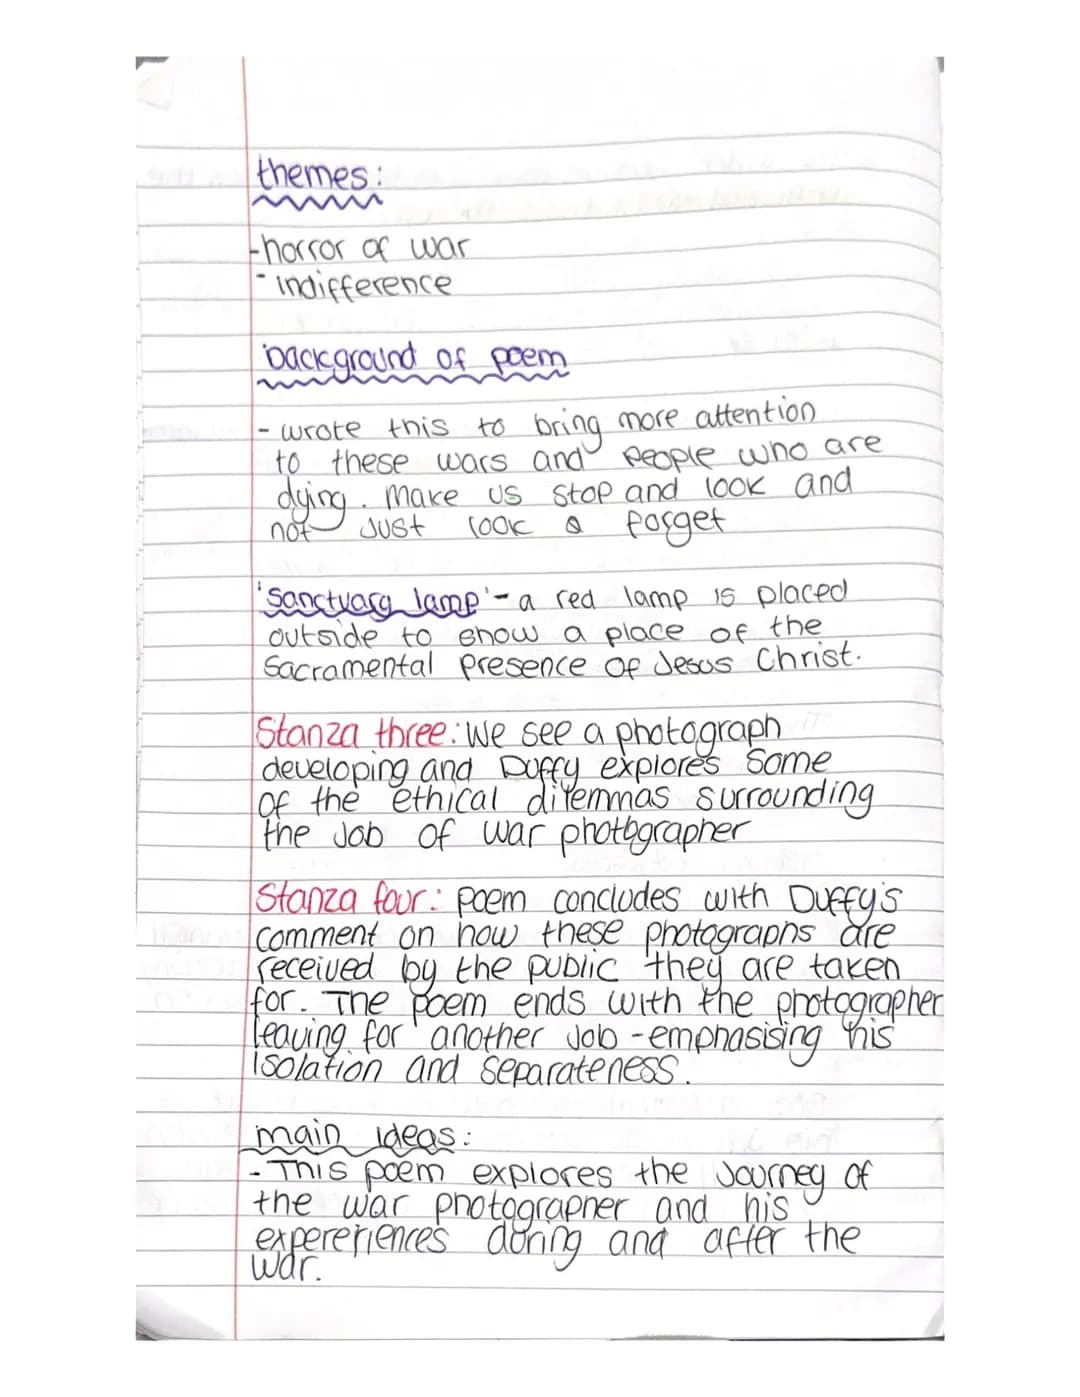 themes:
-horror of war
- indifference
background of poem
- wrote this to bring more attention
to these wars and people who are
dying. make us stop and look and
not just look & forget
'Sanctuary lamp' - a red lamp is placed
outside to show a place of the
Sacramental presence of Jesus Christ.
Stanza three: We see a photograph
developing and Duffy explores some
of the ethical dilemmas surrounding
the job of war photographer
Stanza four: poem concludes with Duffy's
comment on how these photographs are
received by the public they are taken
for. The poem ends with the photographer
leaving for another job - emphasising his
isolation and separateness.
main ideas:
- This poem explores the journey of
the war photographer and his
expereriences during and after the
war.